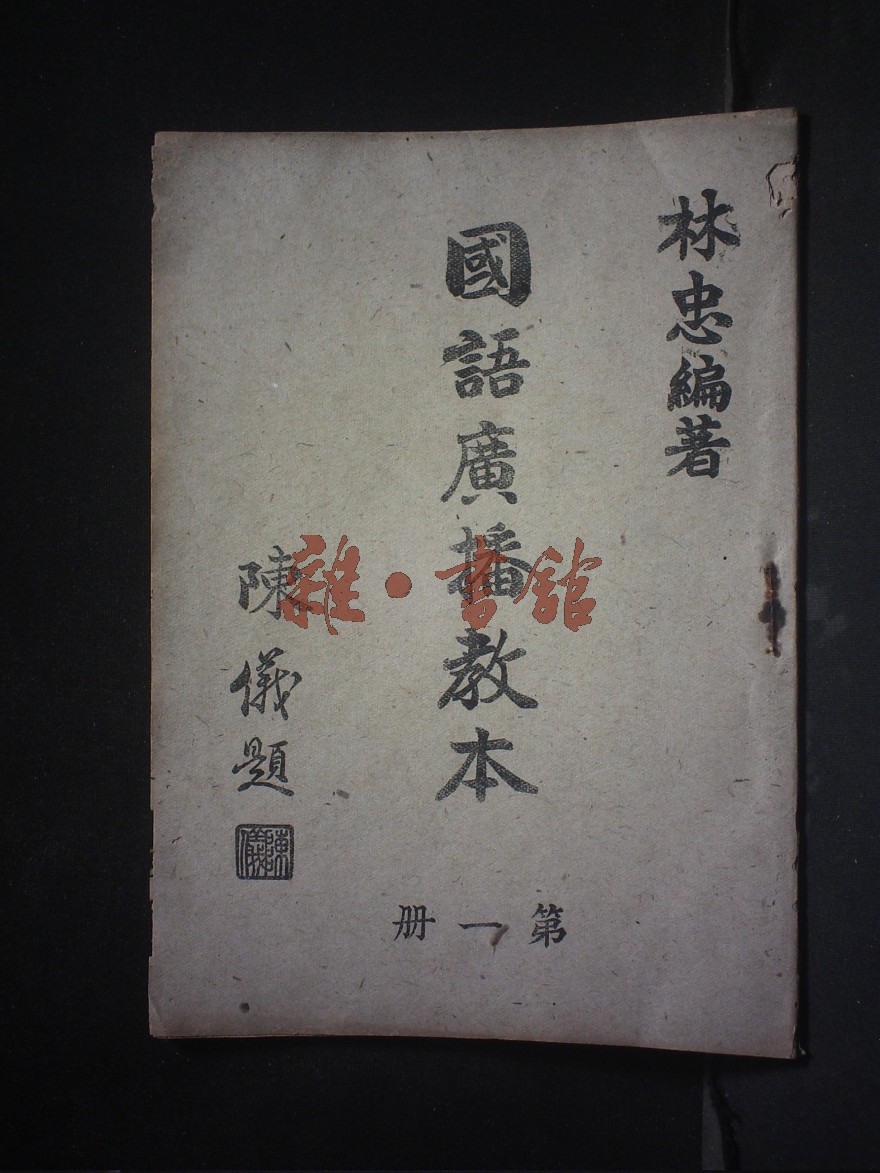 林忠編著
國語廣播教本
陳儀題
陳儀
第一册
雜·書舘